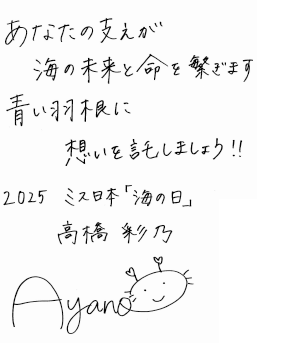 あなたの支えが
海の未来と命を繋ぎます
青い羽根に
想いを託しましょう!!
2025 ミス日本「海の日」
高橋 彩乃
Ayano